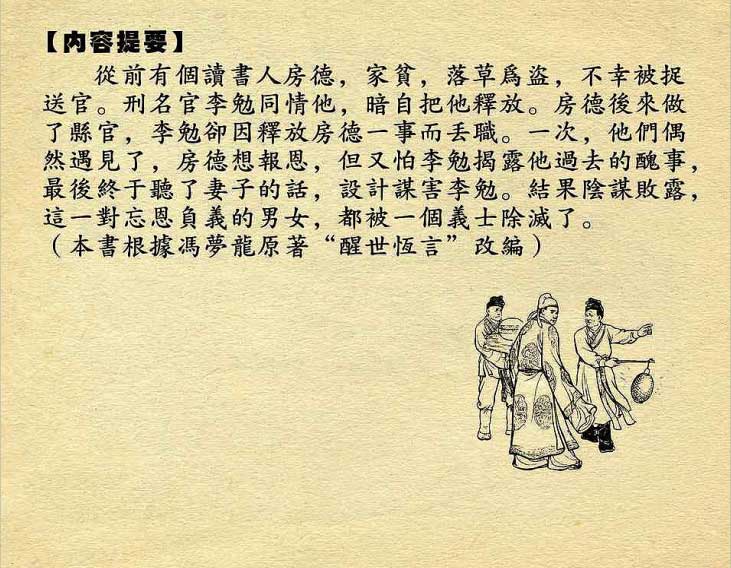 【内容提要】
從前有個讀書人房德，家貧，落草爲盗，不幸被捉
送官。刑名官李勉同情他，暗自把他釋放。房德後來做
了縣官，李勉卻因釋放房德一事而丢職。一次，他們偶
然遇見了，房德想報恩，但又怕李勉揭露他過去的醜事，
最後終于聽了妻子的話，設計謀害李勉。結果陰謀敗露，
這一對忘恩負義的男女，都被一個義士除滅了。
（本書根據馮夢龍原著“醒世恆言”改編）